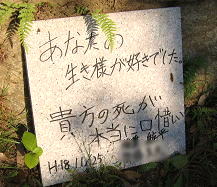 あなたの
生き様が好きでした。
貴方の死が
本当に口惜しい
H.18.11.25